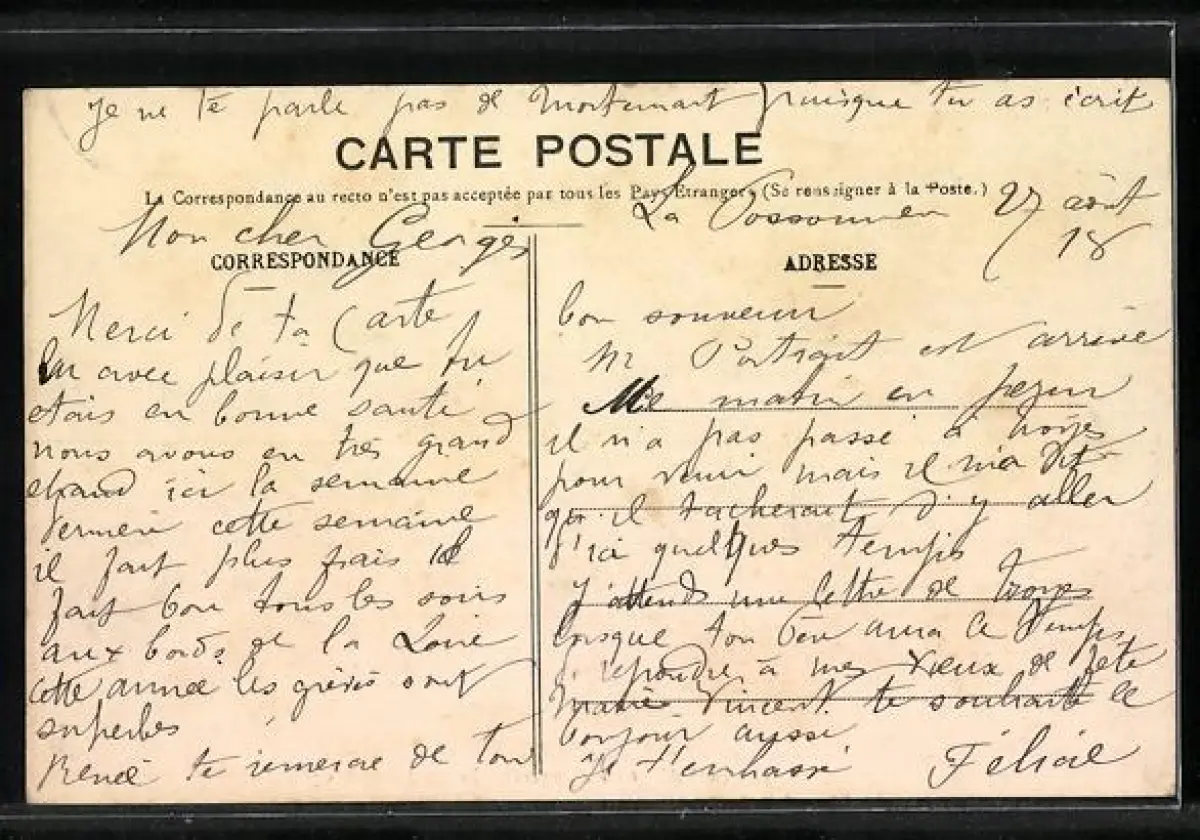 Je ne te parle pas de Mortemart puisque tu as écrit
CARTE POSTALE
La Correspondance au recto n'est pas acceptée par tous les Pays Etrangers (Se renseigner à la Poste.)
La Possonnière 27 août
18
Mon cher Georges
CORRESPONDANCE
Merci de ta Carte
avec plaisir que tu
etais en bonne santé
nous avons eu très grand
chaud ici la semaine
dernière cette semaine
il fait plus frais il
fait bon tous les soirs
aux bords de la Loire
cette année les grèves sont
superbes
Renée te remercie de ton
ADRESSE
bon souvenir
Mr Portrait est arrivé
Me matin en
il n'a pas passé a troyes
pour venir mais il m'a dit
qu'il tacherait d'y aller
d'ici quelques temps
J'attends une lettre de troyes
lorsque ton père aura le temps
répondre à mes vœux de fete
Marie Vincent te souhaite le
bonjour aussi
Je t'embrasse
Félicie